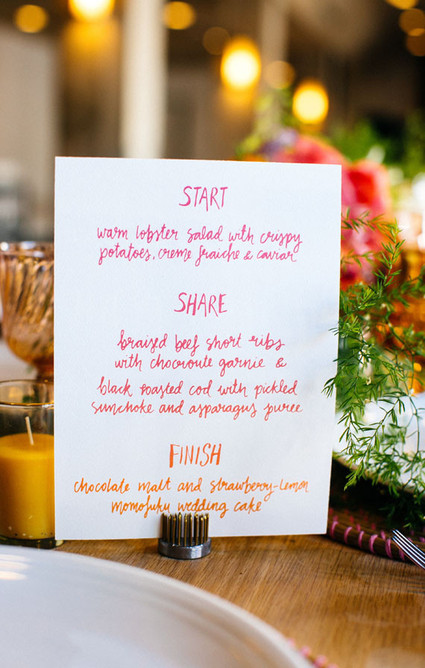 START
warm lobster salad with crispy
potatoes, creme fraiche & caviar
SHARE
braised beef short ribs
with chocoroute garnie &
black roasted cod with pickled
sunchoke and asparagus puree
FINISH
chocolate malt and strawberry-lemon
momofuku wedding cake